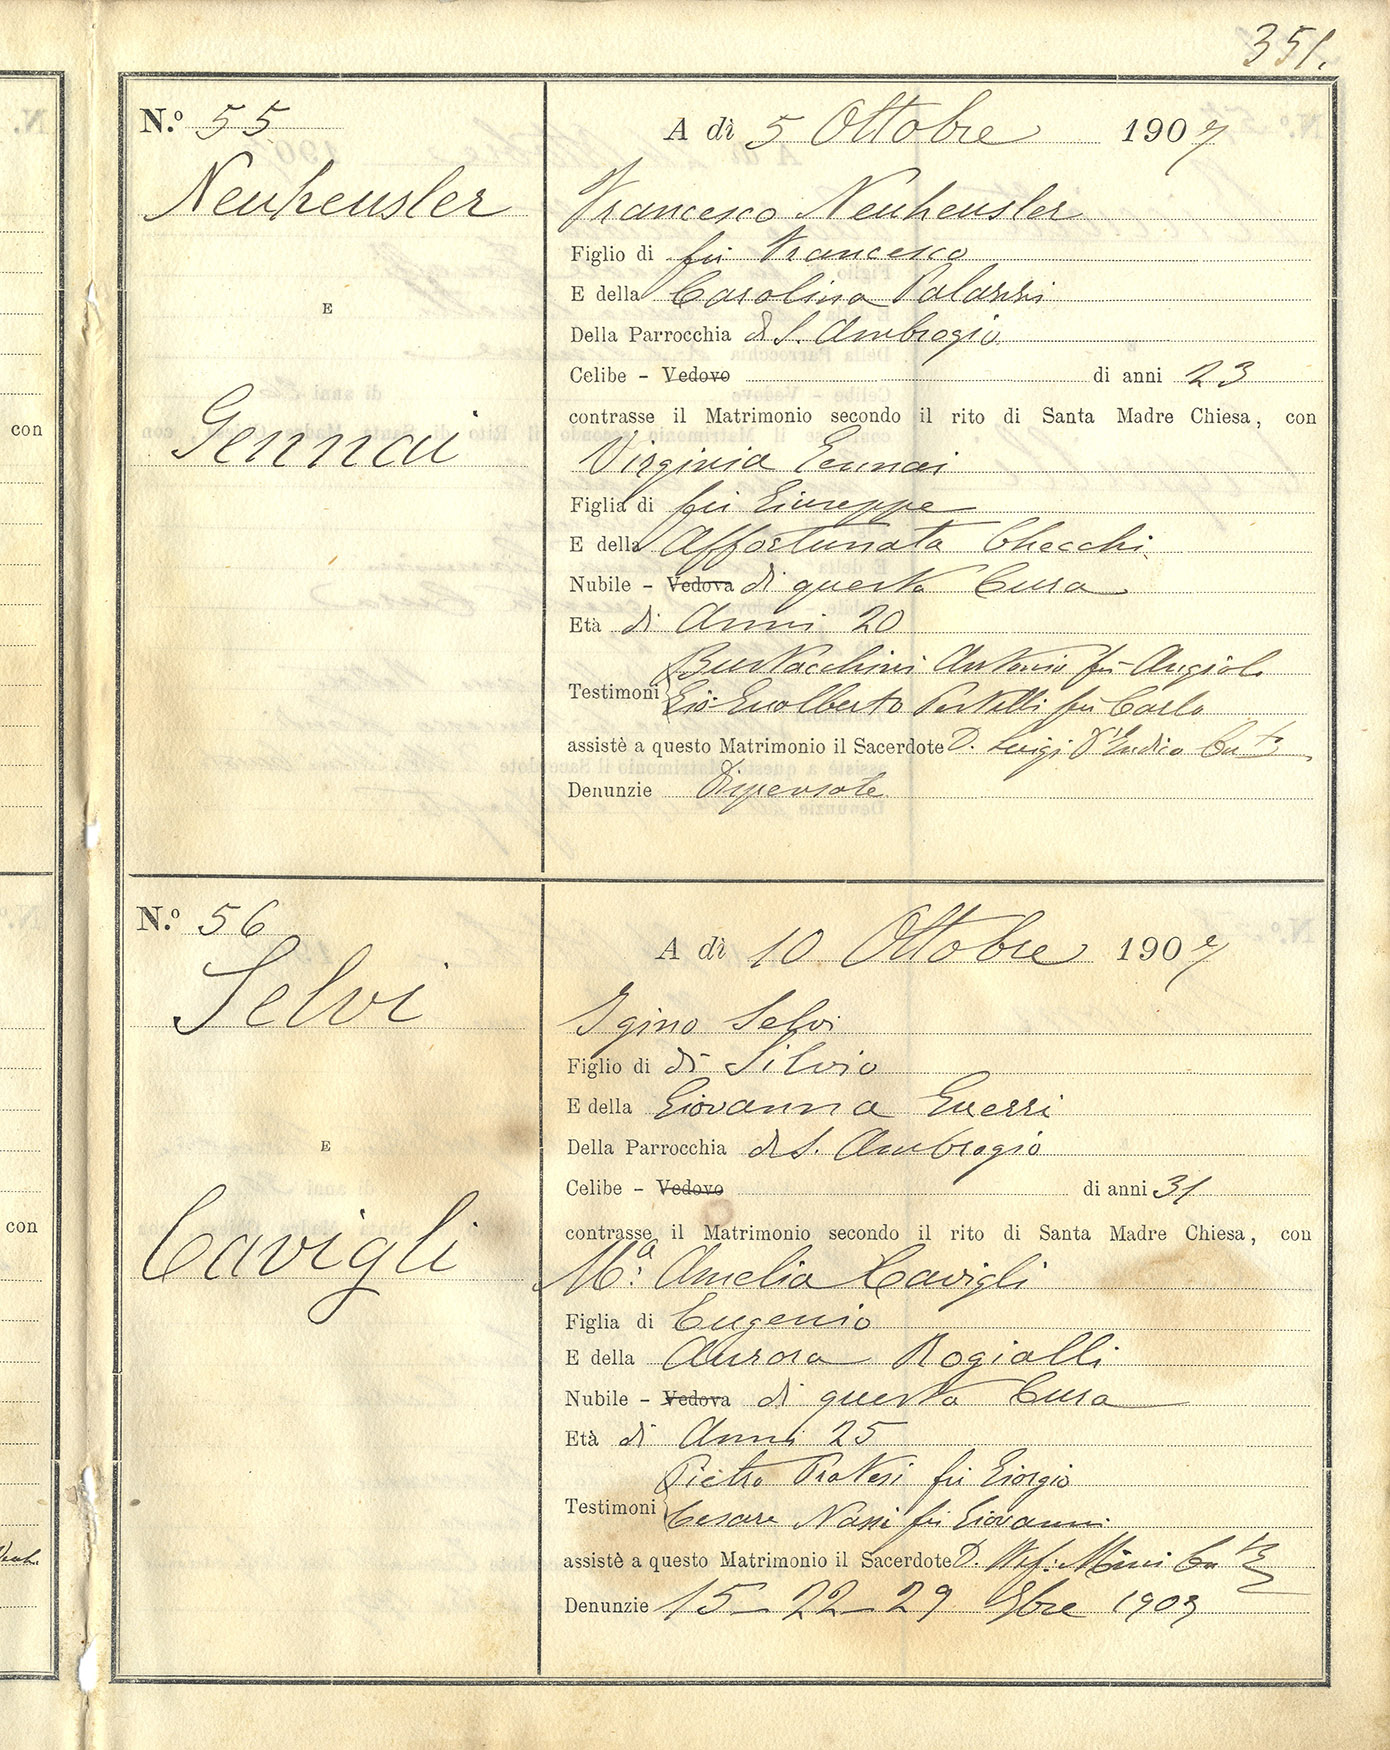 351.
N.º 55
A dì 5 Ottobre 1907
Neuheusler
Francesco Neuheusler
Figlio di fu Francesco
E
E della Carolina Palazzi
Della Parrocchia di S. Ambrogio
Celibe - Vedovo di anni 23
contrasse il Matrimonio secondo il rito di Santa Madre Chiesa, con
con
Gennai
Virginia Gennai
Figlia di fu Giuseppe
E della Affortunata Checchi
Nubile - Vedova di questa Cura
Età di Anni 20
Testimoni
Antonio fu Angiolo
fu Carlo
assistè a questo Matrimonio il Sacerdote D. Luigi
Denunzie Dispensate
N.º 56
A dì 10 Ottobre 1907
Selvi
Igino Selvi
Figlio di di Silvio
E della Giovanna Guerri
E
Della Parrocchia di S. Ambrogio
Celibe - Vedovo di anni 31
contrasse il Matrimonio secondo il rito di Santa Madre Chiesa, con
con
Cavigli
M.ª Amelia Cavigli
Figlia di Eugenio
E della Aurora Rogialli
Nubile - Vedova di questa Cura
Età di Anni 25
Testimoni
Pietro Pratesi fu Giorgio
Cesare fu Giovanni
assistè a questo Matrimonio il Sacerdote D.
Denunzie 15 - 22 - 29 9bre